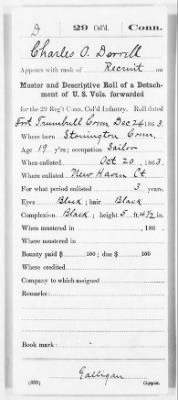 D 29 Col'd. Conn.
Charles O. Dorrell
Appears with rank of Recruit on
Muster and Descriptive Roll of a Detach-
ment of U. S. Vols. forwarded
for the 29 Reg't Conn. Col'd Infantry. Roll dated
Fort Trumbull Conn Dec 24, 1863.
Where born Stonington Conn.
Age 19 y'rs; occupation Sailor
When enlisted Oct 20, 1863.
Where enlisted New Haven Ct.
For what period enlisted 3 years.
Eyes Black; hair Black
Complexion Black; height 5 ft. 4½ in.
When mustered in , 186 .
Where mustered in
Bounty paid $ 100; due $ 100
Where credited
Company to which assigned
Remarks:
Book mark:
Galligan
(339) Copyist.